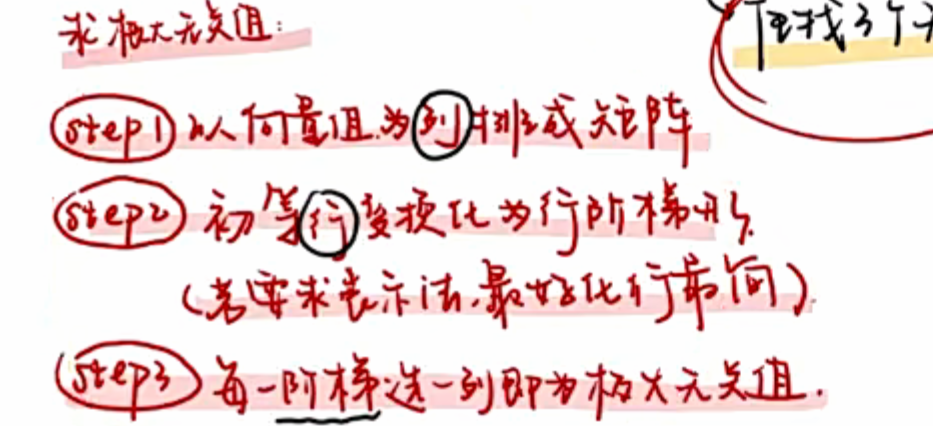 求极大无关组:
但找3个无
step1 以向量组为列排成矩阵
step2 初等行变换化为行阶梯形.
(若要求表示法,最好化行最简).
step3 每一阶梯选一列即为极大无关组.